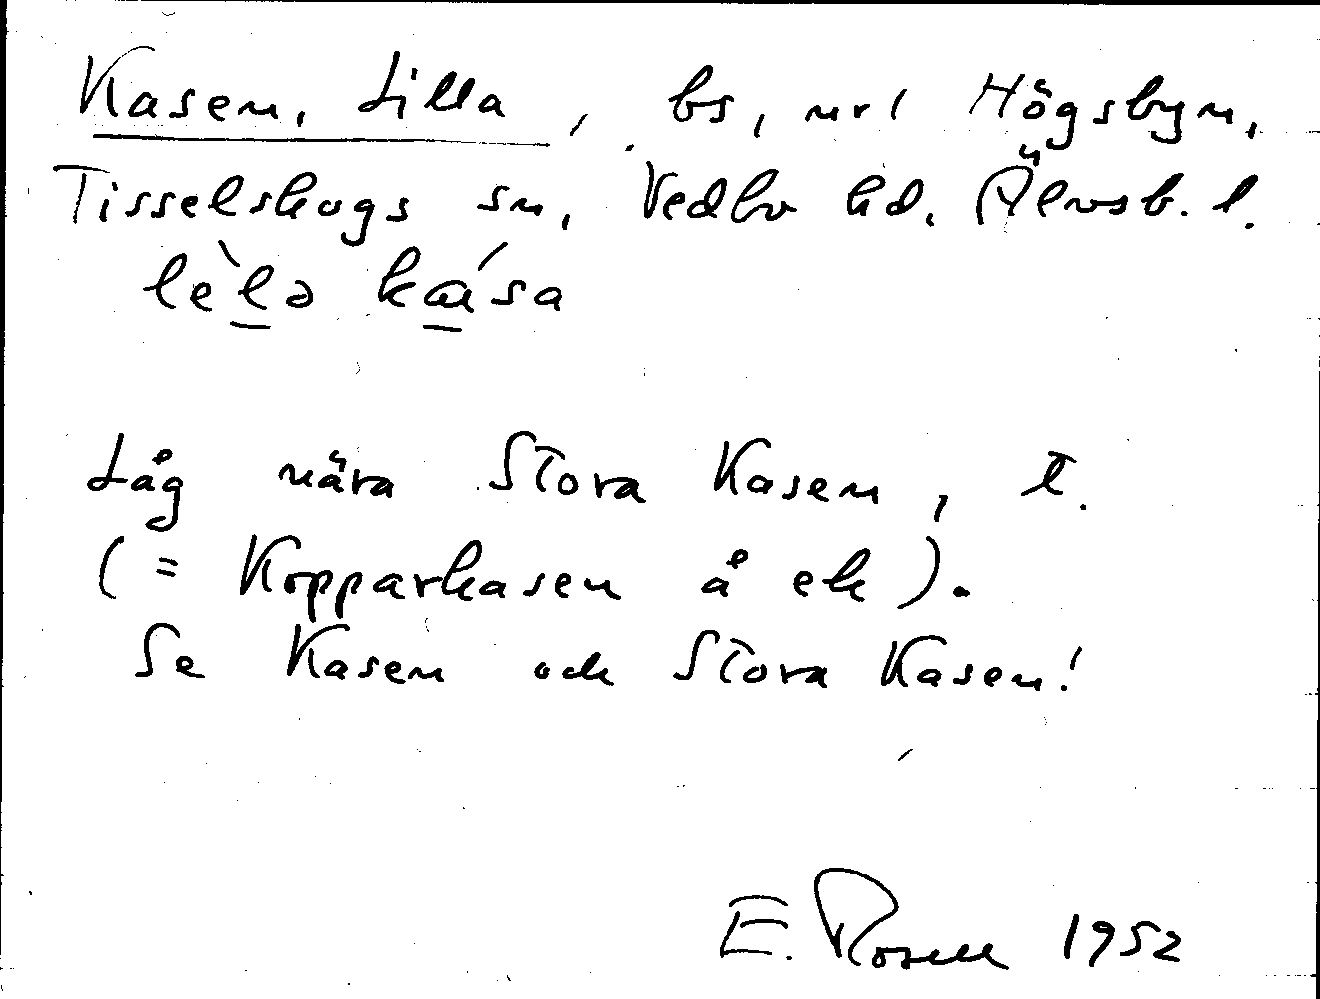 Kasen, Lilla, bs, url Högsbyn,
Tisselskogs sn, Vedbo hd. Älvsb. l.
Låg nära Stora Kasen, t.
(= Kopparkasen å ek).
Se Kasen och Stora Kasen!
E. Rosell 1952